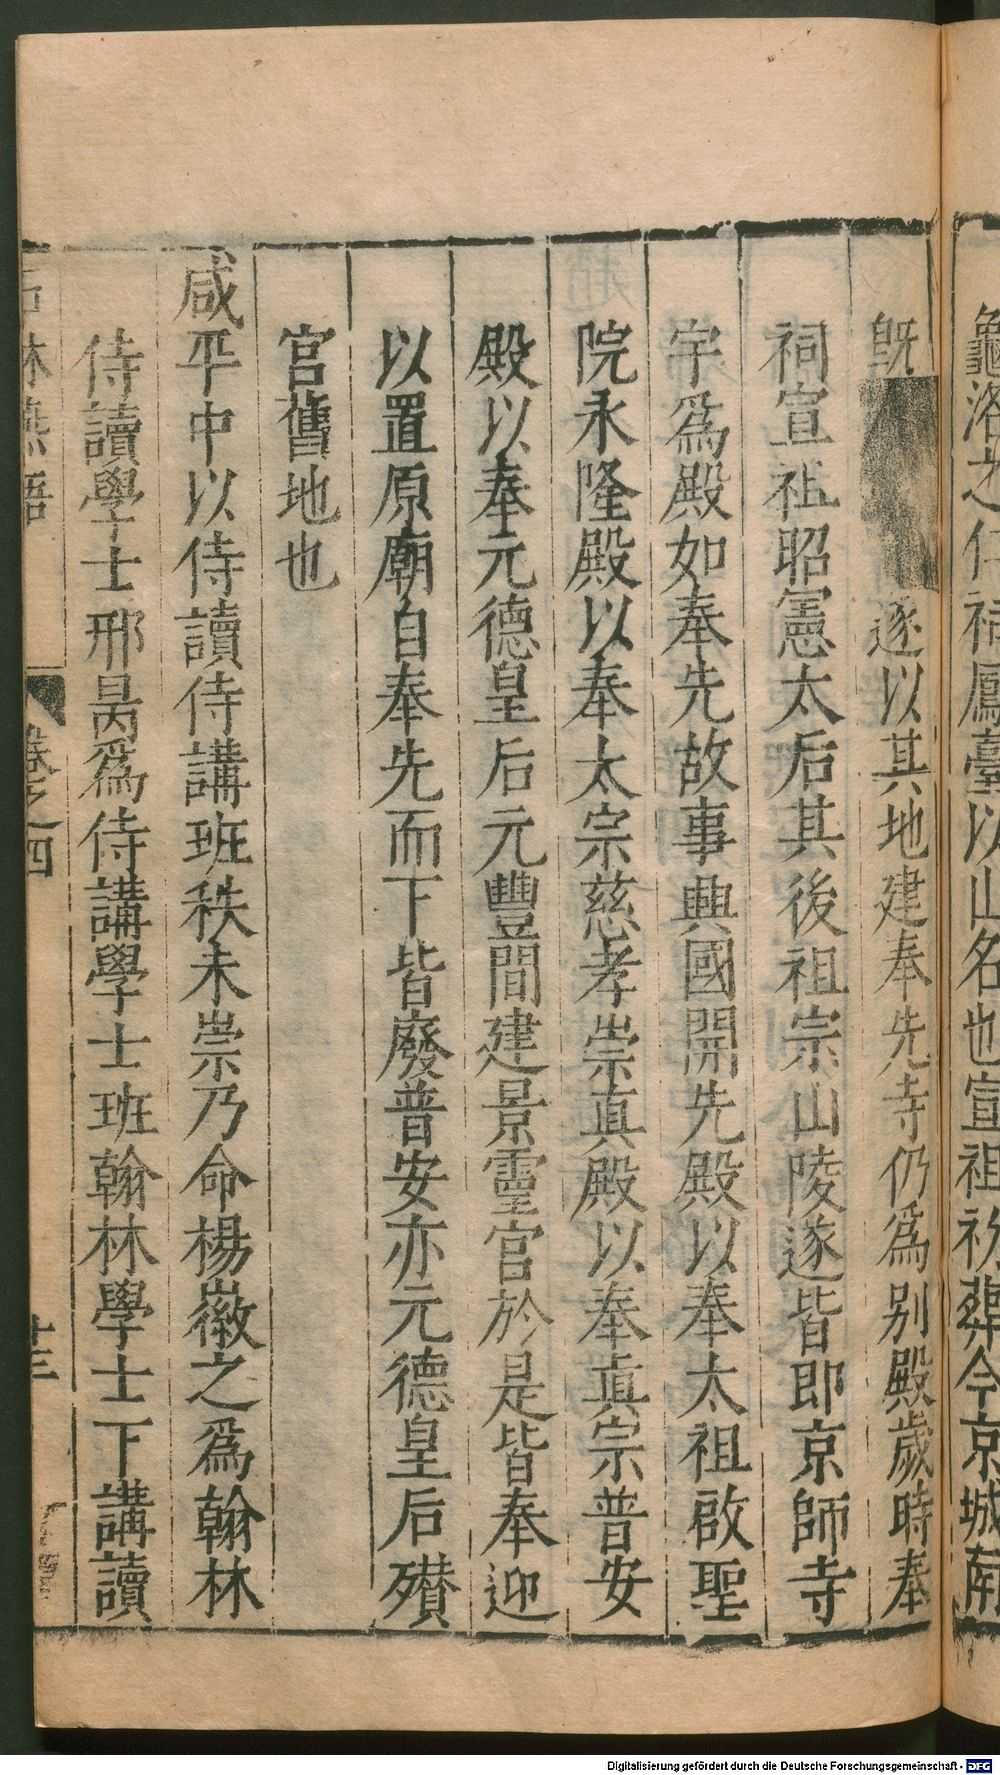 龜洛之仁祠鳳臺以山名也宣祖初葬今京城南
旣
遂以其地建奉先寺仍爲别殿歲時奉
祠宣祖昭憲太后其後祖宗山陵遂皆即京師寺
宇爲殿如奉先故事興國開先殿以奉太祖啟聖
院永隆殿以奉太宗慈孝崇真殿以奉真宗普安
殿以奉元德皇后元豐間建景靈宫於是皆奉迎
以置原廟自奉先而下皆廢普安亦元德皇后殯
宫舊地也
咸平中以侍讀侍講班秩未崇乃命楊徽之爲翰林
侍讀學士邢昺爲侍講學士班翰林學士下講讀
石林燕語
卷之四
十三
Digitalisierung gefördert durch die Deutsche Forschungsgemeinschaft - DFG